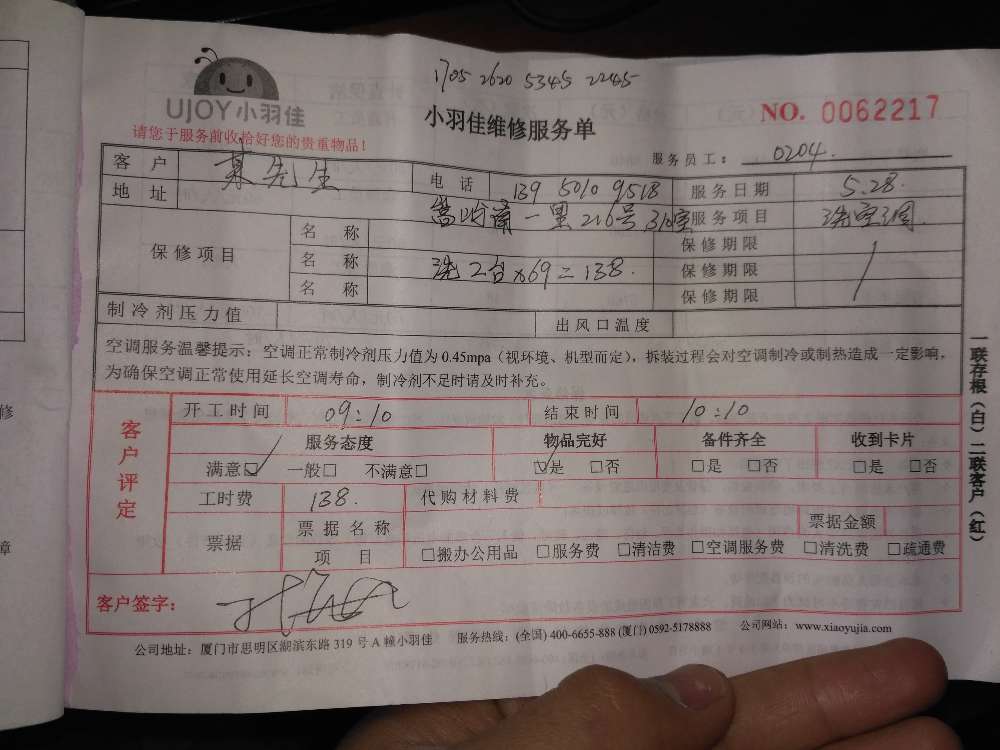 1705 2620 5345 2245
UJOY小羽佳
小羽佳维修服务单
NO. 0062217
请您于服务前收拾好您的贵重物品！
服务员工： 0204.
客 户 先生 电 话 139 5010 9518 服务日期 5.28.
地 址 一里216号310室 服务项目 洗空调
保修项目 名 称 保修期限
名 称 洗2台×69=138. 保修期限
名 称 保修期限
制冷剂压力值 出风口温度
空调服务温馨提示：空调正常制冷剂压力值为 0.45mpa（视环境、机型而定），拆装过程会对空调制冷或制热造成一定影响，
为确保空调正常使用延长空调寿命，制冷剂不足时请及时补充。
客户评定
开工时间 09:10 结束时间 10:10
服务态度 物品完好 备件齐全 收到卡片
满意☑ 一般□ 不满意□ ☑是 □否 □是 □否 □是 □否
工时费 138. 代购材料费
票据 票据名称 票据金额
项 目 □搬办公用品 □服务费 □清洁费 □空调服务费 □清洗费 □疏通费
客户签字：
公司地址：厦门市思明区湖滨东路 319 号 A 幢小羽佳 服务热线：(全国) 400-6655-888 (厦门) 0592-5178888 公司网站：www.xiaoyujia.com
一联存根（白）二联客户（红）
修
障